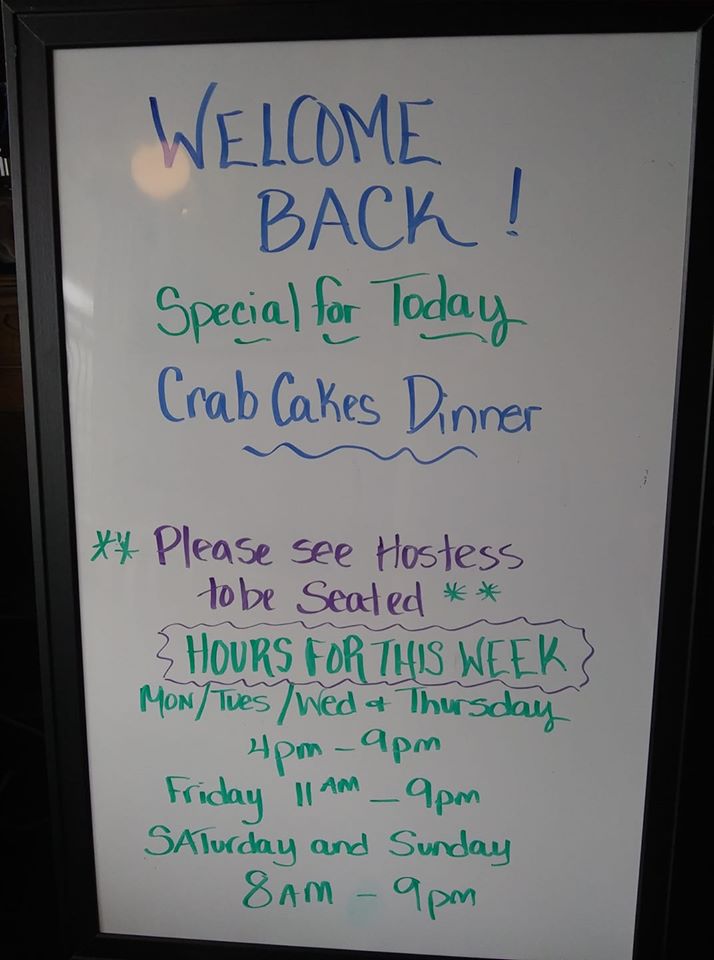 WELCOME
BACK!
Special for Today
Crab Cakes Dinner
** Please see Hostess
to be Seated **
HOURS FOR THIS WEEK
MON/TUES/Wed & Thursday
4pm - 9pm
Friday 11AM - 9pm
SATurday and Sunday
8AM - 9pm